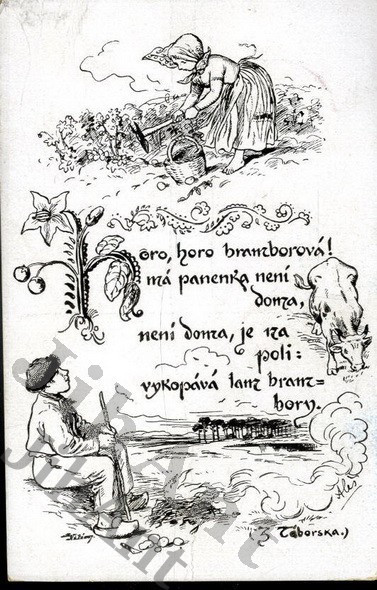 Horo, horo bramborová!
má panenka není
doma,
není doma, je na
poli:
vykopává tam bram=
bory.
Aleš
(Z Táborska.)
JihArt
JihArt